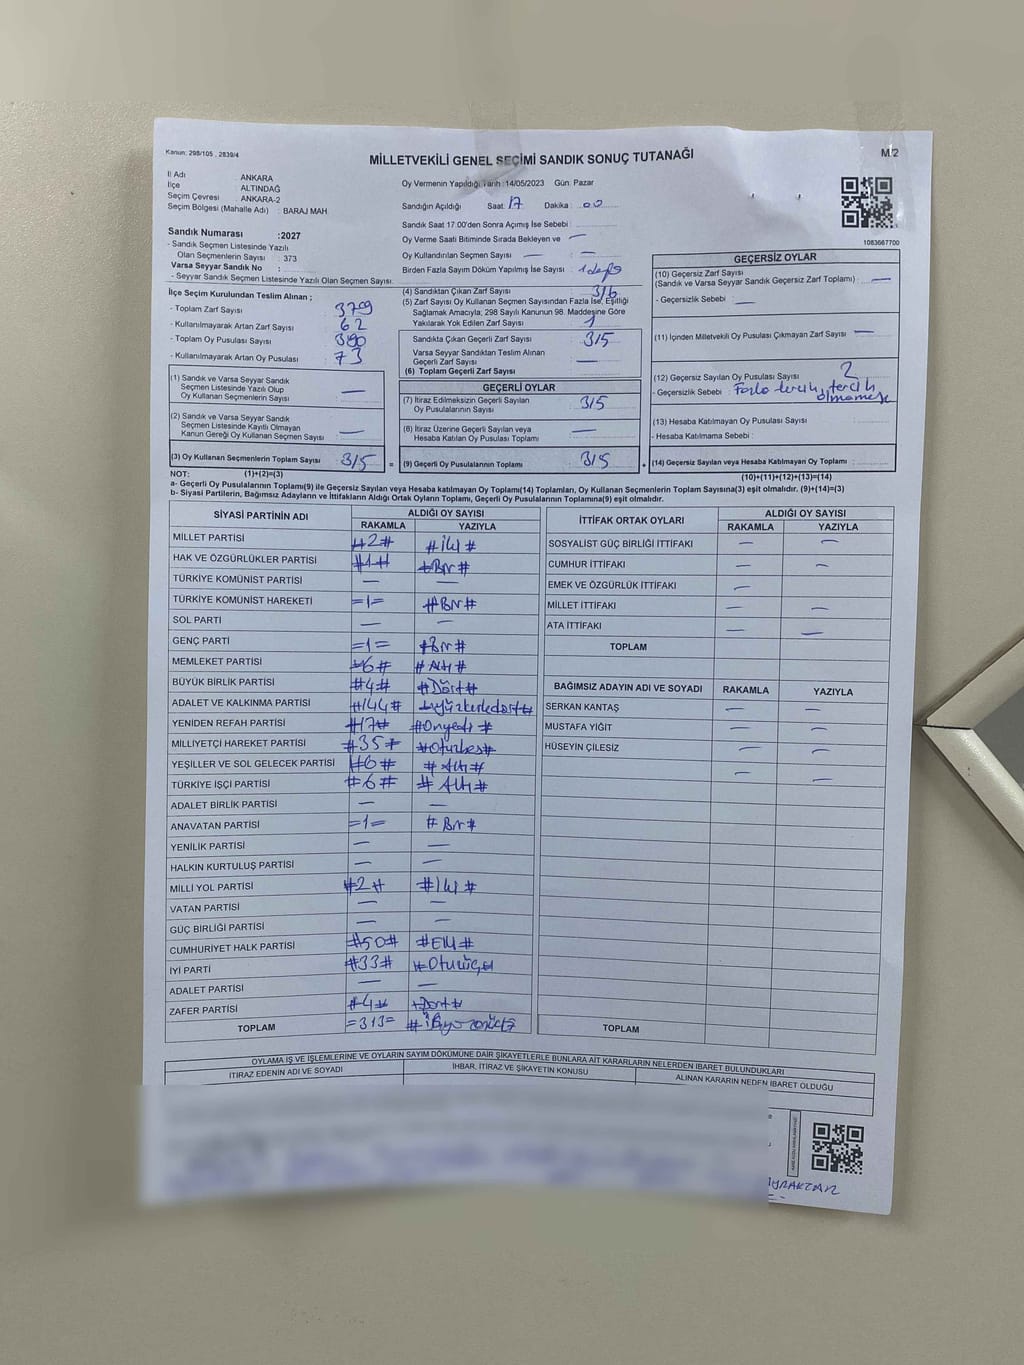 Kanun: 298/105 , 2839/4
MİLLETVEKİLİ GENEL SEÇİMİ SANDIK SONUÇ TUTANAĞI
M/2
İl Adı ANKARA
İlçe ALTINDAĞ
Seçim Çevresi ANKARA-2
Seçim Bölgesi (Mahalle Adı) : BARAJ MAH
Oy Vermenin Yapıldığı Tarih :14/05/2023 Gün: Pazar
Sandığın Açıldığı Saat: 17 Dakika : 00
Sandık Saat 17:00'den Sonra Açımış İse Sebebi :
Oy Verme Saati Bitiminde Sırada Bekleyen ve —
Oy Kullandırılan Seçmen Sayısı : —
Birden Fazla Sayım Döküm Yapılmış İse Sayısı :
1083667700
Sandık Numarası :2027
- Sandık Seçmen Listesinde Yazılı
Olan Seçmenlerin Sayısı : 373
Varsa Seyyar Sandık No :
- Seyyar Sandık Seçmen Listesinde Yazılı Olan Seçmen Sayısı
İlçe Seçim Kurulundan Teslim Alınan ;
- Toplam Zarf Sayısı : 379
- Kullanılmayarak Artan Zarf Sayısı : 62
- Toplam Oy Pusulası Sayısı :
- Kullanılmayarak Artan Oy Pusulası : 73
(1) Sandık ve Varsa Seyyar Sandık
Seçmen Listesinde Yazılı Olup
Oy Kullanan Seçmenlerin Sayısı : —
(2) Sandık ve Varsa Seyyar Sandık
Seçmen Listesinde Kayıtlı Olmayan
Kanun Gereği Oy Kullanan Seçmen Sayısı : —
(3) Oy Kullanan Seçmenlerin Toplam Sayısı : 315
(1)+(2)=(3)
(4) Sandıktan Çıkan Zarf Sayısı : 316
(5) Zarf Sayısı Oy Kullanan Seçmen Sayısından Fazla İse, Eşitliği
Sağlamak Amacıyla; 298 Sayılı Kanunun 98. Maddesine Göre
Yakılarak Yok Edilen Zarf Sayısı : 1
Sandıkta Çıkan Geçerli Zarf Sayısı : 315
Varsa Seyyar Sandıktan Teslim Alınan
Geçerli Zarf Sayısı : —
(6) Toplam Geçerli Zarf Sayısı :
GEÇERLİ OYLAR
(7) İtiraz Edilmeksizin Geçerli Sayılan
Oy Pusulalarının Sayısı : 315
(8) İtiraz Üzerine Geçerli Sayılan veya
Hesaba Katılan Oy Pusulası Toplamı : —
= (9) Geçerli Oy Pusulalarının Toplamı : 315
GEÇERSİZ OYLAR
(10) Geçersiz Zarf Sayısı
(Sandık ve Varsa Seyyar Sandık Geçersiz Zarf Toplamı) : —
- Geçersizlik Sebebi : —
(11) İçinden Milletvekili Oy Pusulası Çıkmayan Zarf Sayısı : —
(12) Geçersiz Sayılan Oy Pusulası Sayısı : 2
- Geçersizlik Sebebi : Fazla tercih, tercih
olmaması
(13) Hesaba Katılmayan Oy Pusulası Sayısı :
- Hesaba Katılmama Sebebi :
+ (14) Geçersiz Sayılan veya Hesaba Katılmayan Oy Toplamı :
(10)+(11)+(12)+(13)=(14)
NOT:
a- Geçerli Oy Pusulalarının Toplamı(9) ile Geçersiz Sayılan veya Hesaba katılmayan Oy Toplamı(14) Toplamları, Oy Kullanan Seçmenlerin Toplam Sayısına(3) eşit olmalıdır. (9)+(14)=(3)
b- Siyasi Partilerin, Bağımsız Adayların ve İttifakların Aldığı Ortak Oyların Toplamı, Geçerli Oy Pusulalarının Toplamına(9) eşit olmalıdır.
SİYASİ PARTİNİN ADI ALDIĞI OY SAYISI
RAKAMLA YAZIYLA
MİLLET PARTİSİ #2# #İki#
HAK VE ÖZGÜRLÜKLER PARTİSİ #1# #Bir#
TÜRKİYE KOMÜNİST PARTİSİ — —
TÜRKİYE KOMÜNİST HAREKETİ =1= #Bir#
SOL PARTİ — —
GENÇ PARTİ =1= #Bir#
MEMLEKET PARTİSİ #6# #Altı#
BÜYÜK BİRLİK PARTİSİ #4# #Dört#
ADALET VE KALKINMA PARTİSİ #144# #yüzkırkdört#
YENİDEN REFAH PARTİSİ #17# #Onyedi#
MİLLİYETÇİ HAREKET PARTİSİ #35# #Otuzbeş#
YEŞİLLER VE SOL GELECEK PARTİSİ #6# #Altı#
TÜRKİYE İŞÇİ PARTİSİ #6# #Altı#
ADALET BİRLİK PARTİSİ — —
ANAVATAN PARTİSİ =1= #Bir#
YENİLİK PARTİSİ — —
HALKIN KURTULUŞ PARTİSİ — —
MİLLİ YOL PARTİSİ #2# #İki#
VATAN PARTİSİ — —
GÜÇ BİRLİĞİ PARTİSİ — —
CUMHURİYET HALK PARTİSİ #50# #Elli#
İYİ PARTİ #33# #Otuzüç#
ADALET PARTİSİ — —
ZAFER PARTİSİ #4# #Dört#
TOPLAM =313=
İTTİFAK ORTAK OYLARI ALDIĞI OY SAYISI
RAKAMLA YAZIYLA
SOSYALİST GÜÇ BİRLİĞİ İTTİFAKI — —
CUMHUR İTTİFAKI — —
EMEK VE ÖZGÜRLÜK İTTİFAKI —
MİLLET İTTİFAKI — —
ATA İTTİFAKI — —
TOPLAM
BAĞIMSIZ ADAYIN ADI VE SOYADI RAKAMLA YAZIYLA
SERKAN KANTAŞ — —
MUSTAFA YİĞİT — —
HÜSEYİN ÇİLESİZ — —
— —
TOPLAM
OYLAMA İŞ VE İŞLEMLERİNE VE OYLARIN SAYIM DÖKÜMÜNE DAİR ŞİKAYETLERLE BUNLARA AİT KARARLARIN NELERDEN İBARET BULUNDUKLARI
İTİRAZ EDENİN ADI VE SOYADI İHBAR, İTİRAZ VE ŞİKAYETİN KONUSU ALINAN KARARIN NEDEN İBARET OLDUĞU